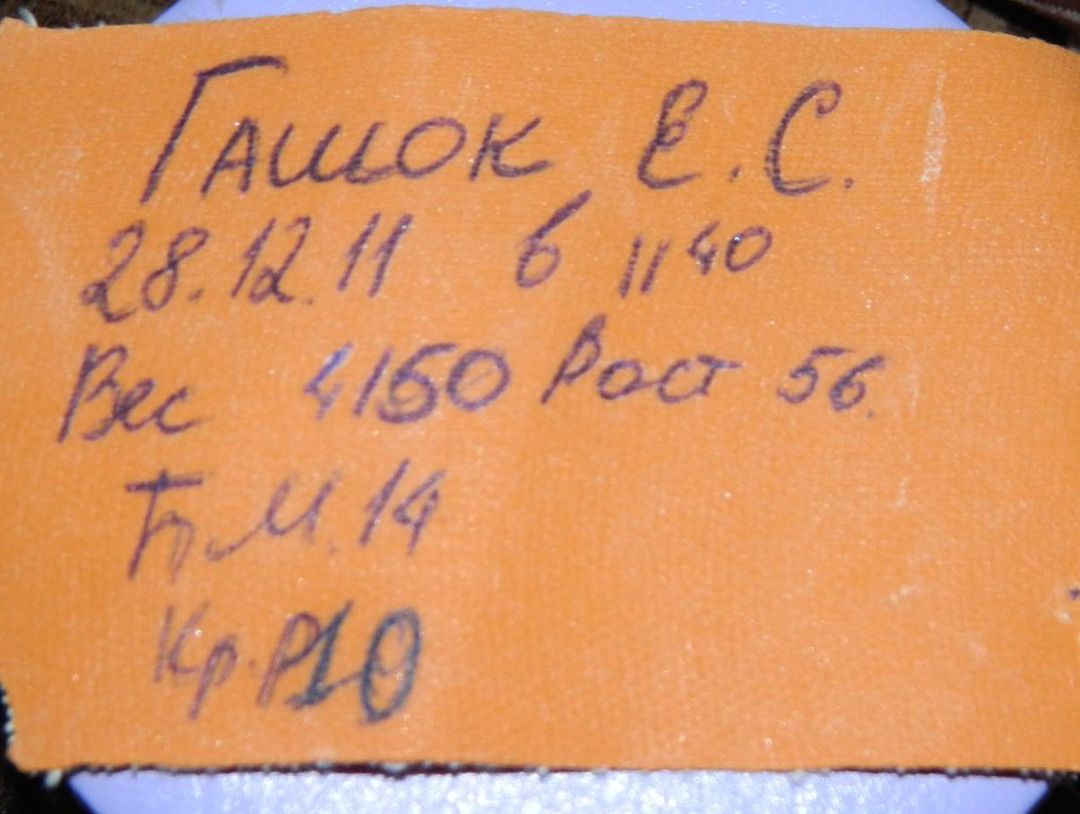 Гашок Е.С.
28.12.11 в 11 40
Вес 4150 Рост 56.
Б.М. 14
Кр.Р10